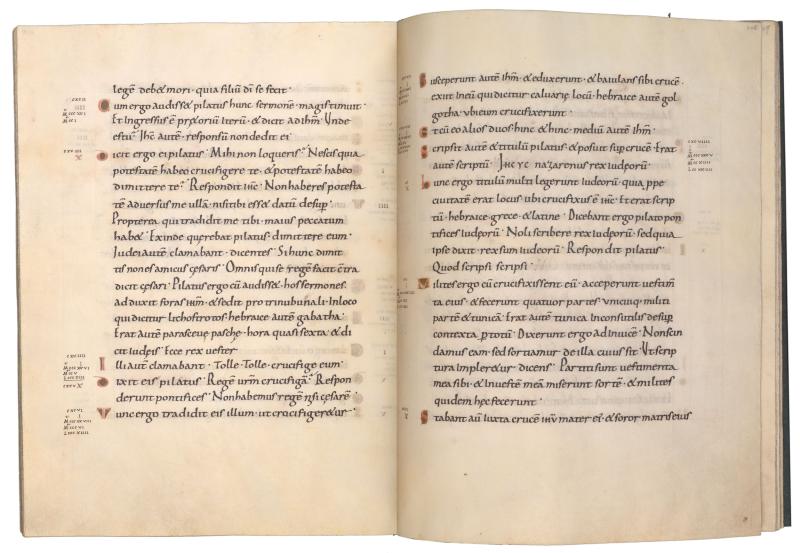 legē deb& mori · quia filiū dī se fecit
Cum ergo audiss& pilatus hunc sermonē · magis timuit ·
Et Ingressus ē prȩtoriū Iterū · & dicit ad ihm̄ · Unde
es tu · Ihc̄ autē · responsū non dedit ei
Dicit ergo ei pilatus · Mihi non loqueris · Nescis quia
potestatē habeo crucifigere te · & potestatē habeo
dimittere te · Respondit ihc̄ · Non haberes potesta
tē adversus me ullā · nisi tibi ess& datū desup ·
Propterea qui tradidit me tibi · maius peccatum
hab& · Exinde quȩrebat pilatus · dimittere eum ·
Iudei autē clamabant · dicentes · Si hunc dimit
tis non es amicus cȩsaris · Omnis qui se regē facit c̄tra
dicit cȩsari · Pilatus ergo cū audiss& hos sermones ·
adduxit foras ihm̄ · & sedit pro tribunali · In loco
qui dicitur lichostrotos · hebraice autē gabatha ·
Erat autē parasceue paschȩ · hora quasi sexta · & di
cit Iudȩis · Ecce rex vester
Illi autē clamabant · Tolle · Tolle · crucifige eum ·
Dixit eis pilatus · Regē vrm̄ crucifigā · Respon
derunt pontifices · Non habemus regē nisi cȩsarē
Tunc ergo tradidit eis illum · ut crucifiger&ur ·
Susceperunt autē ihm̄ · & eduxerunt · & baiulans sibi crucē ·
exiit In eū qui dicitur caluariȩ locū · hebraice autē gol
gotha · ubi eum crucifixerunt ·
Et cū eo alios duos hinc & hinc · mediū autē ihm̄ ·
Scripsit autē & titulū pilatus · & posuit sup crucē · Erat
autē scriptū · Ihc ȳc nazarenus rex iudȩorū ·
Hunc ergo titulum multi legerunt iudȩorū · quia ppe
ciuitatē erat locus ubi crucifixus ē ihc̄ · Et erat scrip
tū · hebraice · grece · & latine · Dicebant ergo pilato pon
tifices Iudȩorū · Noli scribere rex iudȩorū · sed quia
ipse dixit · rex sum iudeorū · Respondit pilatus ·
Quod scripsi scripsi ·
Milites ergo cū crucifixissent eū · acceperunt uestim̄
ta eius · & fecerunt quatuor partes · vnicuiq; militi
partē & tunicā · Erat autē tunica Inconsutilis desup
contexta p totū · Dixerunt ergo ad inuicē · Non scin
damus eam · sed sortiamur de illa cuius sit · Ut scrip
tura Impler&ur · dicens · Partiti sunt uestimenta
mea sibi · & In uestē meā miserunt sortē · & milites
quidem hȩc fecerunt ·
Stabant aū Iuxta crucē ihū mater ei · & soror matris eius